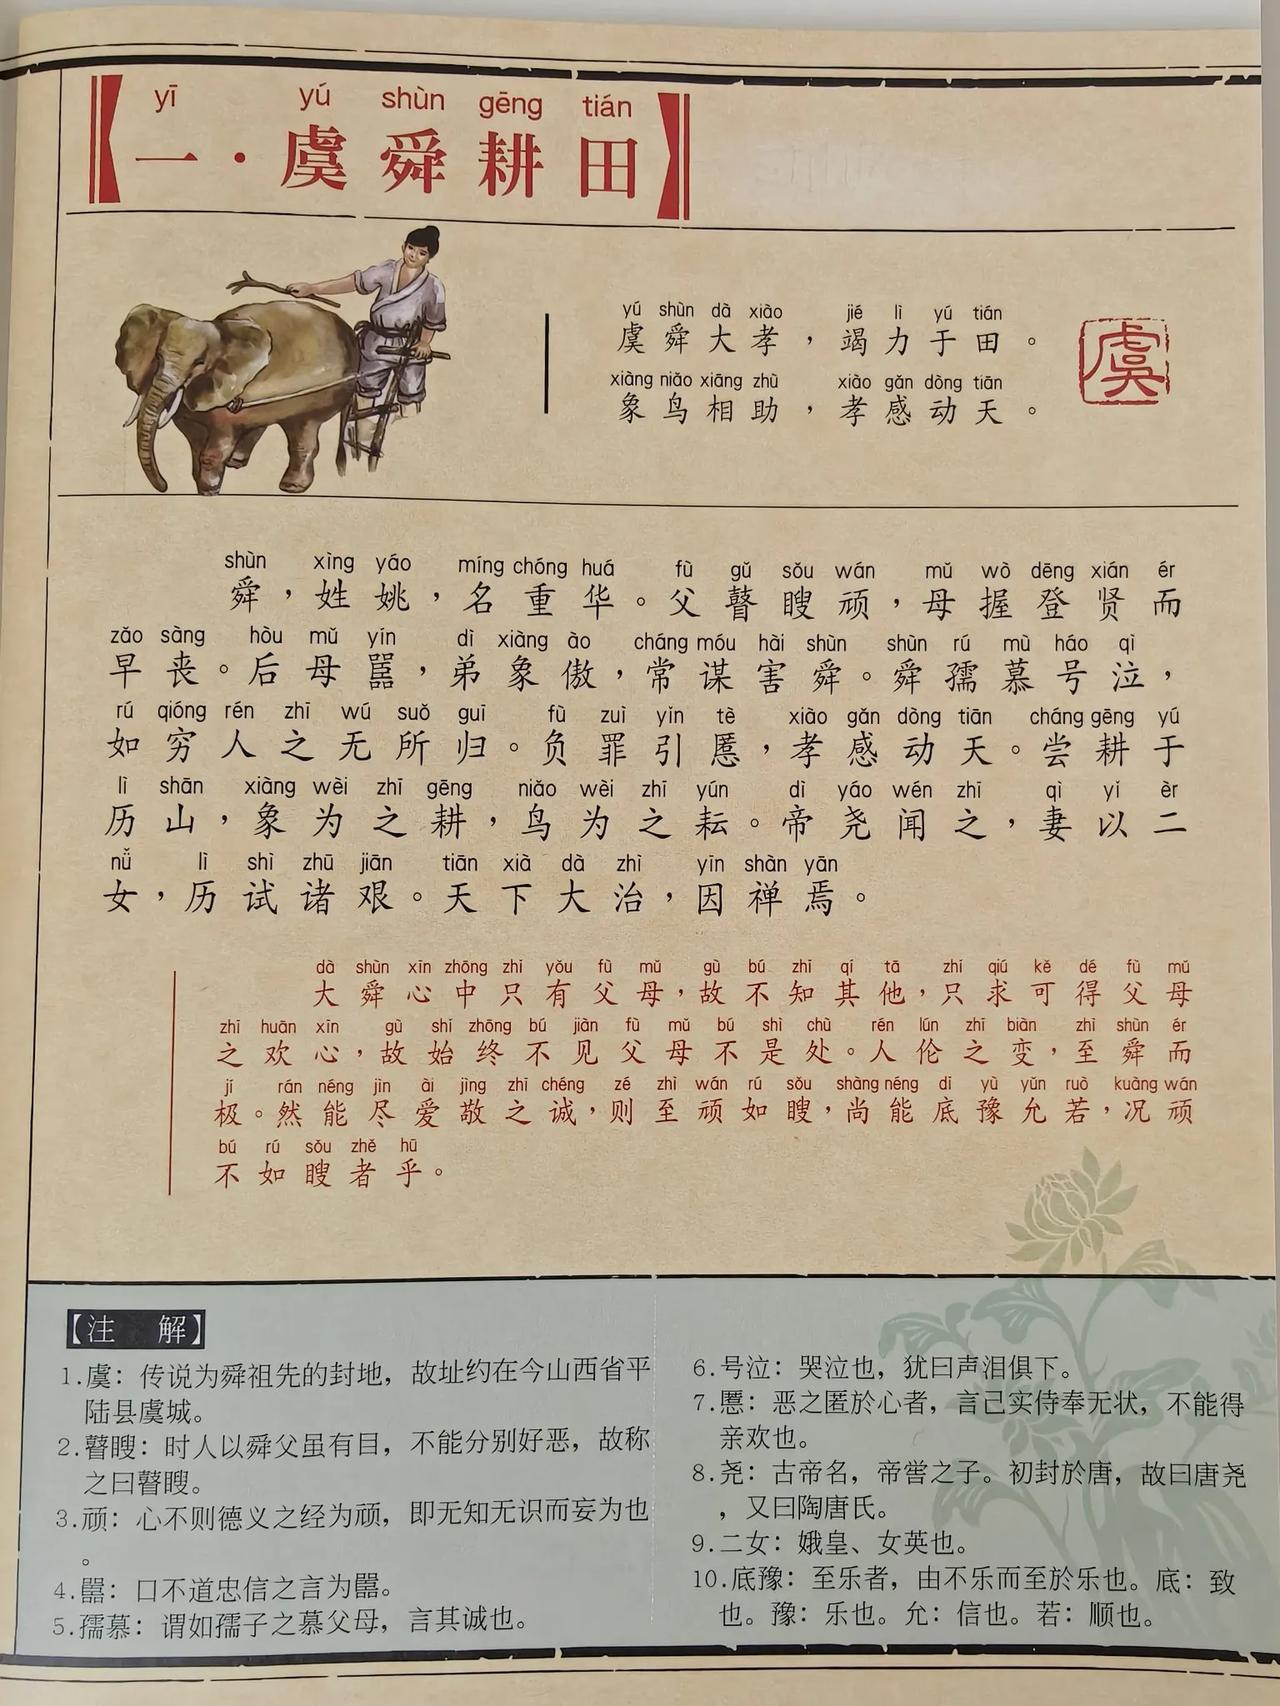 yī yú shùn gēng tián
【一·虞舜耕田】
yú shùn dà xiào jié lì yú tián
虞舜大孝，竭力于田。
xiàng niǎo xiāng zhù xiào gǎn dòng tiān
象鸟相助，孝感动天。
虞
shùn xìng yáo míng chóng huá fù gǔ sǒu wán mǔ wò dēng xián ér
舜，姓姚，名重华。父瞽瞍顽，母握登贤而
zǎo sàng hòu mǔ yín dì xiàng ào cháng móu hài shùn shùn rú mù háo qì
早丧。后母嚚，弟象傲，常谋害舜。舜孺慕号泣，
rú qióng rén zhī wú suǒ guī fù zuì yǐn tè xiào gǎn dòng tiān cháng gēng yú
如穷人之无所归。负罪引慝，孝感动天。尝耕于
lì shān xiàng wèi zhī gēng niǎo wèi zhī yún dì yáo wén zhī qì yǐ èr
历山，象为之耕，鸟为之耘。帝尧闻之，妻以二
nǚ lì shì zhū jiān tiān xià dà zhì yīn shàn yān
女，历试诸艰。天下大治，因禅焉。
dà shùn xīn zhōng zhǐ yǒu fù mǔ gù bú zhī qí tā zhǐ qiú kě dé fù mǔ
大舜心中只有父母，故不知其他，只求可得父母
zhī huān xīn gù shǐ zhōng bú jiàn fù mǔ bú shì chù rén lún zhī biàn zhì shùn ér
之欢心，故始终不见父母不是处。人伦之变，至舜而
jí rán néng jìn ài jìng zhī chéng zé zhì wán rú sǒu shàng néng dǐ yù yǔn ruò kuàng wán
极。然能尽爱敬之诚，则至顽如瞍，尚能底豫允若，况顽
bú rú sǒu zhě hū
不如瞍者乎。
【注 解】
1.虞：传说为舜祖先的封地，故址约在今山西省平
陆县虞城。
2.瞽瞍：时人以舜父虽有目，不能分别好恶，故称
之曰瞽瞍。
3.顽：心不则德义之经为顽，即无知无识而妄为也
。
4.嚚：口不道忠信之言为嚚。
5.孺慕：谓如孺子之慕父母，言其诚也。
6.号泣：哭泣也，犹曰声泪俱下。
7.慝：恶之匿於心者，言己实侍奉无状，不能得
亲欢也。
8.尧：古帝名，帝喾之子。初封於唐，故曰唐尧
，又曰陶唐氏。
9.二女：娥皇、女英也。
10.底豫：至乐者，由不乐而至於乐也。底：致
也。豫：乐也。允：信也。若：顺也。